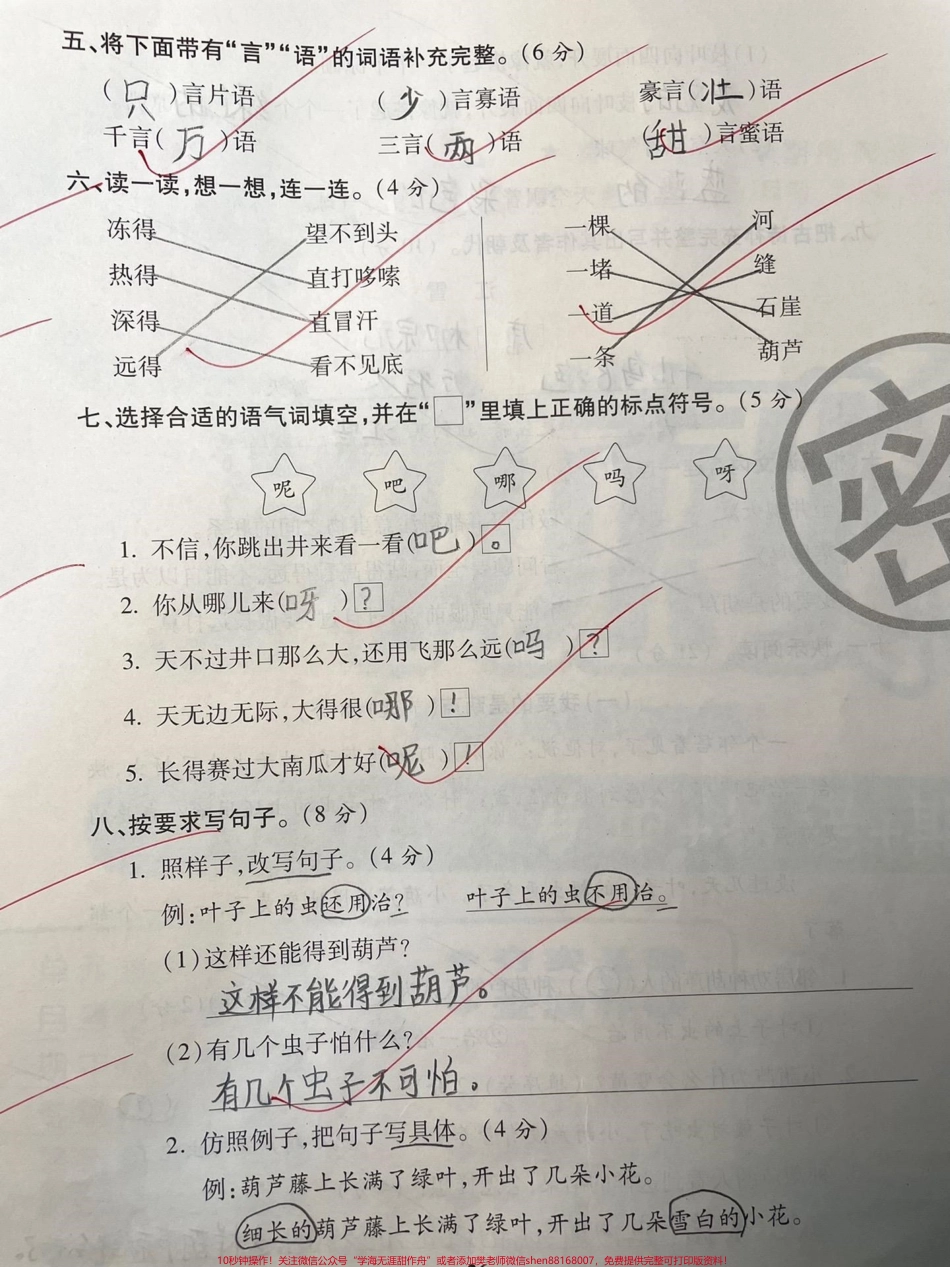 五、将下面带有“言”“语”的词语补充完整。(6分)
(只)言片语 (少)言寡语 豪言(壮)语
千言(万)语 三言(两)语 (甜)言蜜语
六、读一读,想一想,连一连。(4分)
冻得 望不到头 一棵 河
热得 直打哆嗦 一堵 缝
深得 直冒汗 一道 石崖
远得 看不见底 一条 葫芦
七、选择合适的语气词填空,并在“□”里填上正确的标点符号。(5分)
呢 吧 哪 吗 呀
1. 不信,你跳出井来看一看(吧)。
2. 你从哪儿来(呀)?
3. 天不过井口那么大,还用飞那么远(吗)?
4. 天无边无际,大得很(哪)!
5. 长得赛过大南瓜才好(呢)!
八、按要求写句子。(8分)
1. 照样子,改写句子。(4分)
例:叶子上的虫还用治? 叶子上的虫不用治。
(1)这样还能得到葫芦?
这样不能得到葫芦。
(2)有几个虫子怕什么?
有几个虫子不可怕。
2. 仿照例子,把句子写具体。(4分)
例:葫芦藤上长满了绿叶,开出了几朵小花。
细长的葫芦藤上长满了绿叶,开出了几朵雪白的小花。
密
10秒钟操作！关注微信公众号“学海无涯甜作舟”或者添加樊老师微信shen88168007，免费提供完整可打印版资料！